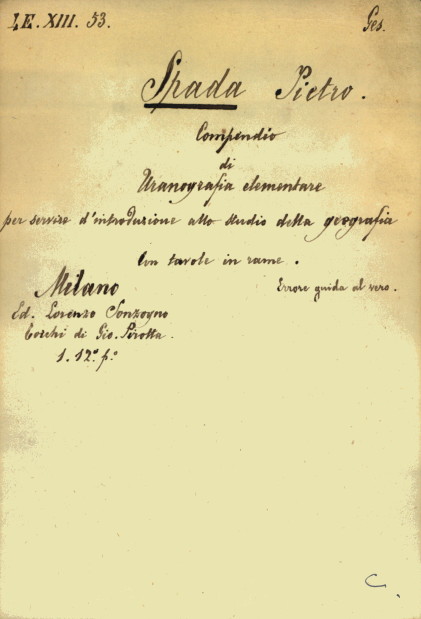 LE. XIII. 53.
Ges.
Spada Pietro.
Compendio
di
Uranografia elementare
per servire d'introduzione allo studio della geografia
Con tavole in rame.
Milano
Errore guida al vero.
Ed. Lorenzo Sonzogno
Torchi di Gio. Pirotta.
1. 12.° p.°
C.